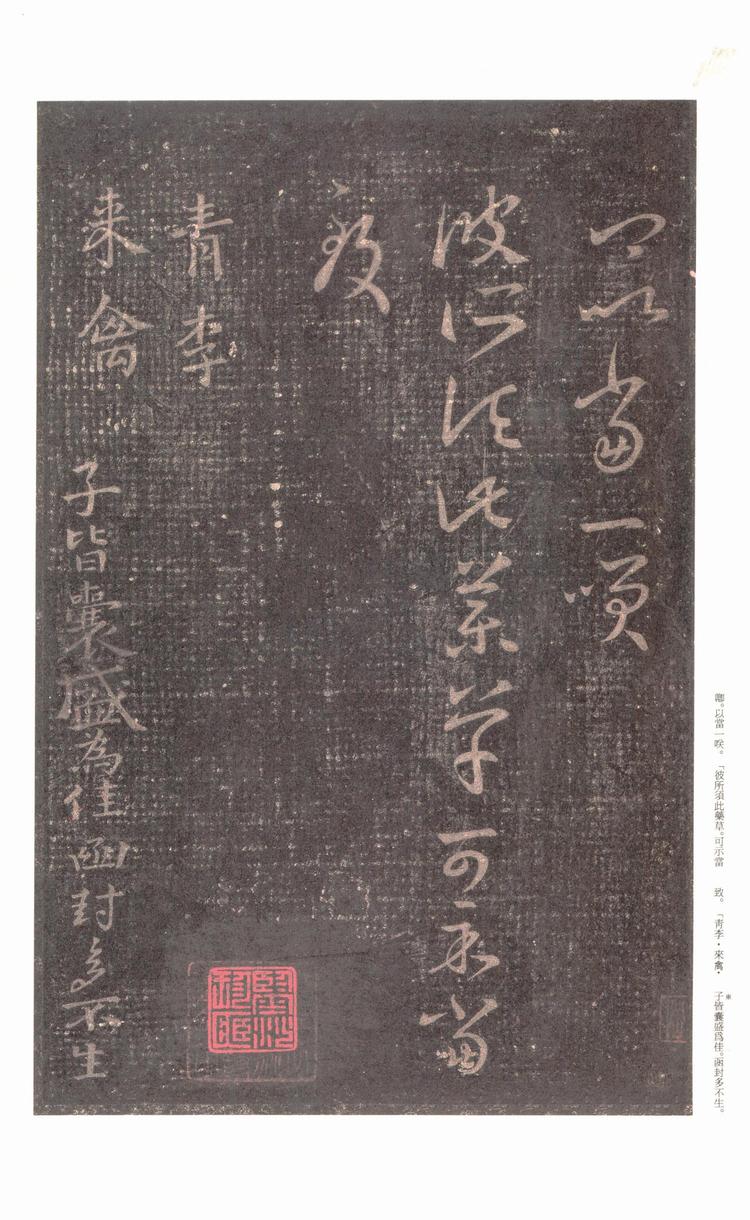 卿以當一笑
彼所須此藥草可示當
致
青李
来禽
子皆囊盛為佳函封多不生
鄉。以當一咲。「彼所須此藥草。可示當 致。「青李・來禽・ 子皆囊盛爲佳。函封多不生。